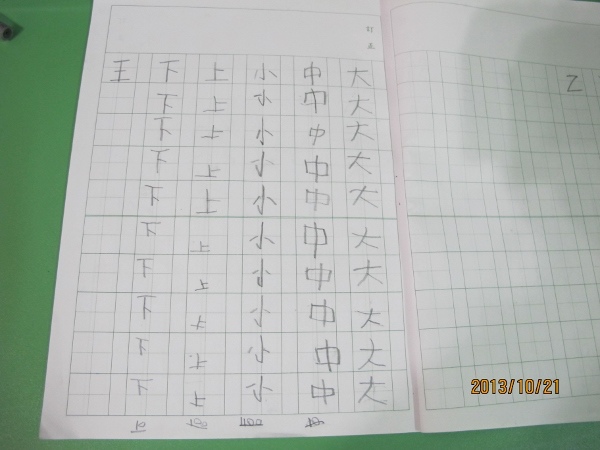 大大大大大大大大大大
中中中中中中中中中中
小小小小小小小小小小
上上上上上上上上上上
下下下下下下下下下下
王
乙
2013/10/21